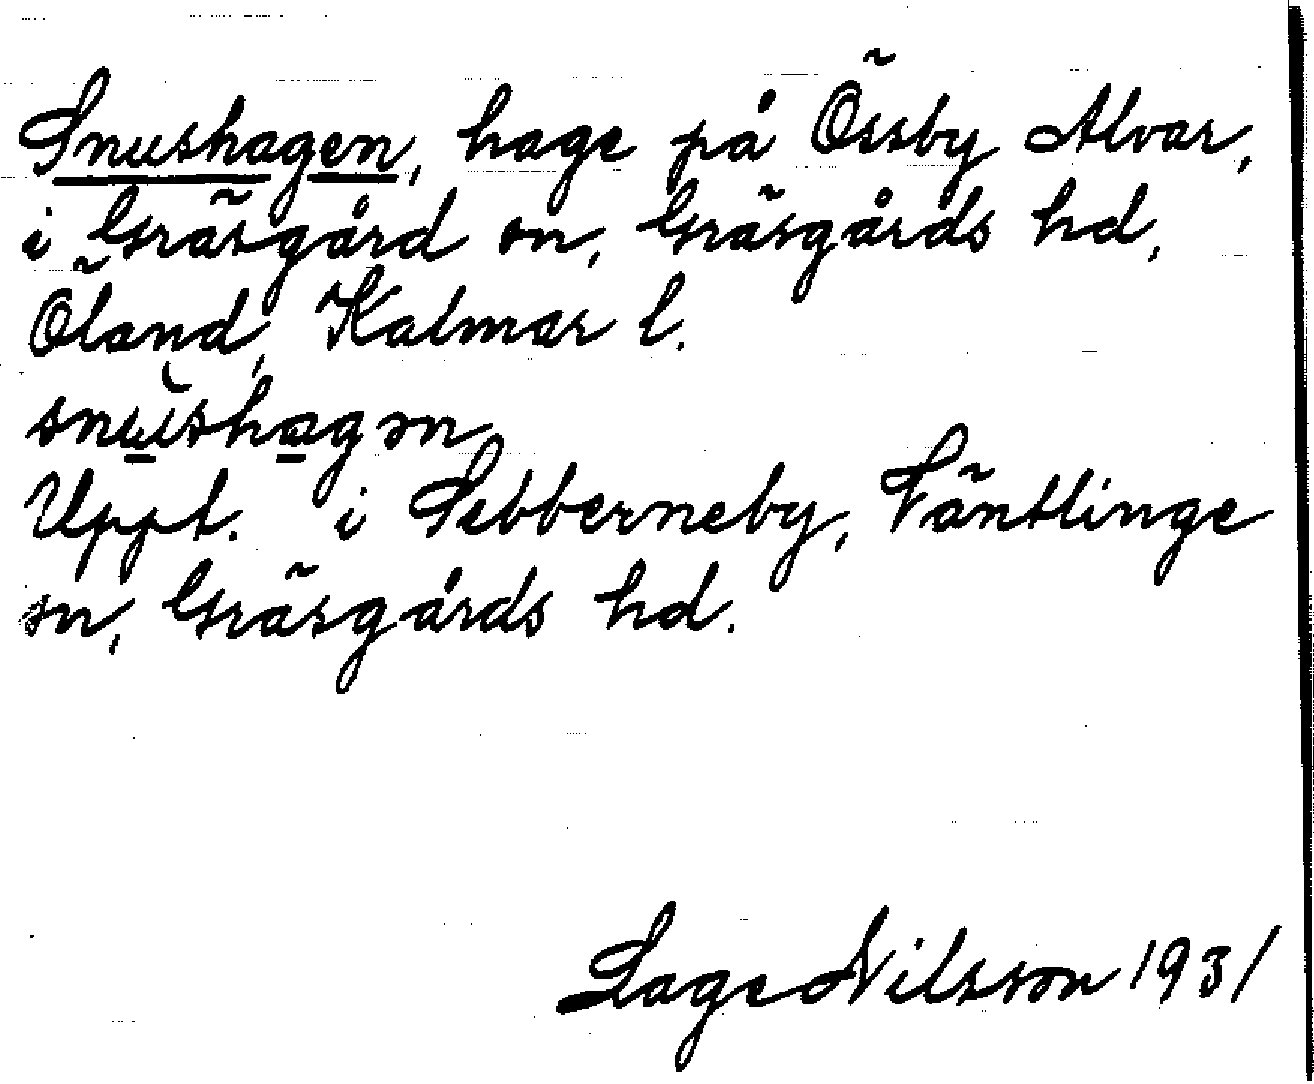 Snushagen, hage på Össby Alvar,
i Gräsgård sn, Gräsgårds hd,
Öland, Kalmar l.
snushagən
Uppt. i Sebberneby, Ventlinge
sn, Gräsgårds hd.
Lage Nilsson 1931